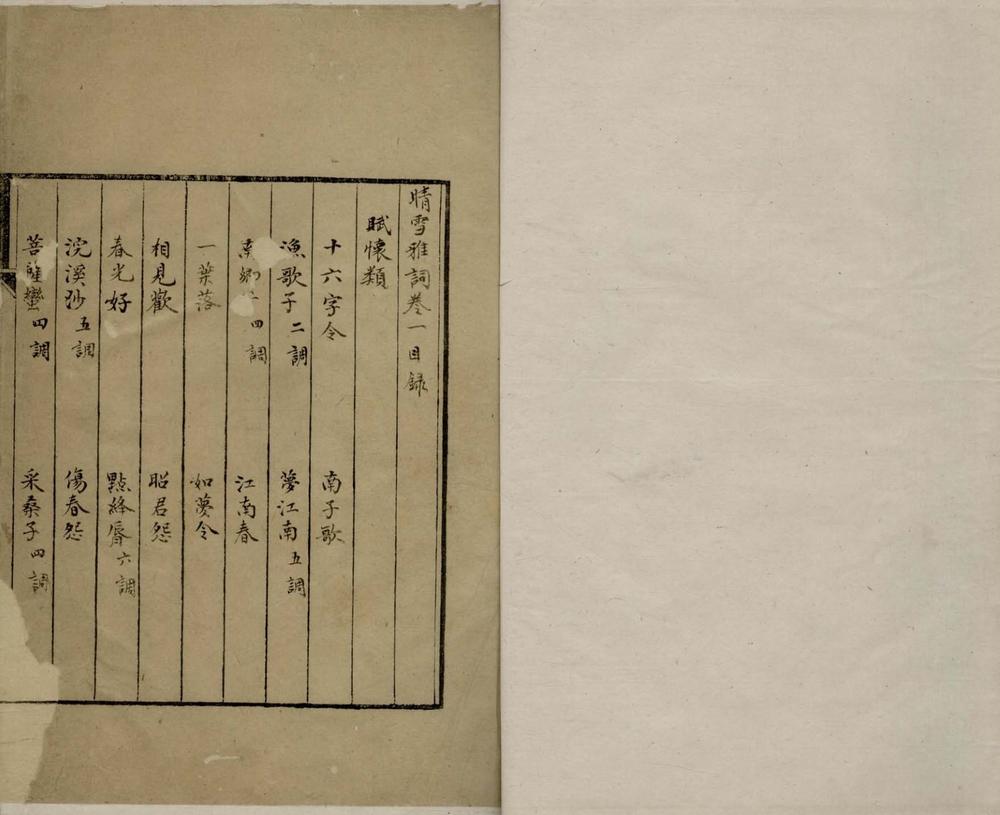 晴雪雅詞卷一目録
賦懷類
十六字令 南子歌
漁歌子二調 夢江南五調
南鄉子四調 江南春
一葉落 如夢令
相見歡 昭君怨
春光好 點絳脣六調
浣溪沙五調 傷春怨
菩薩蠻四調 采桑子四調